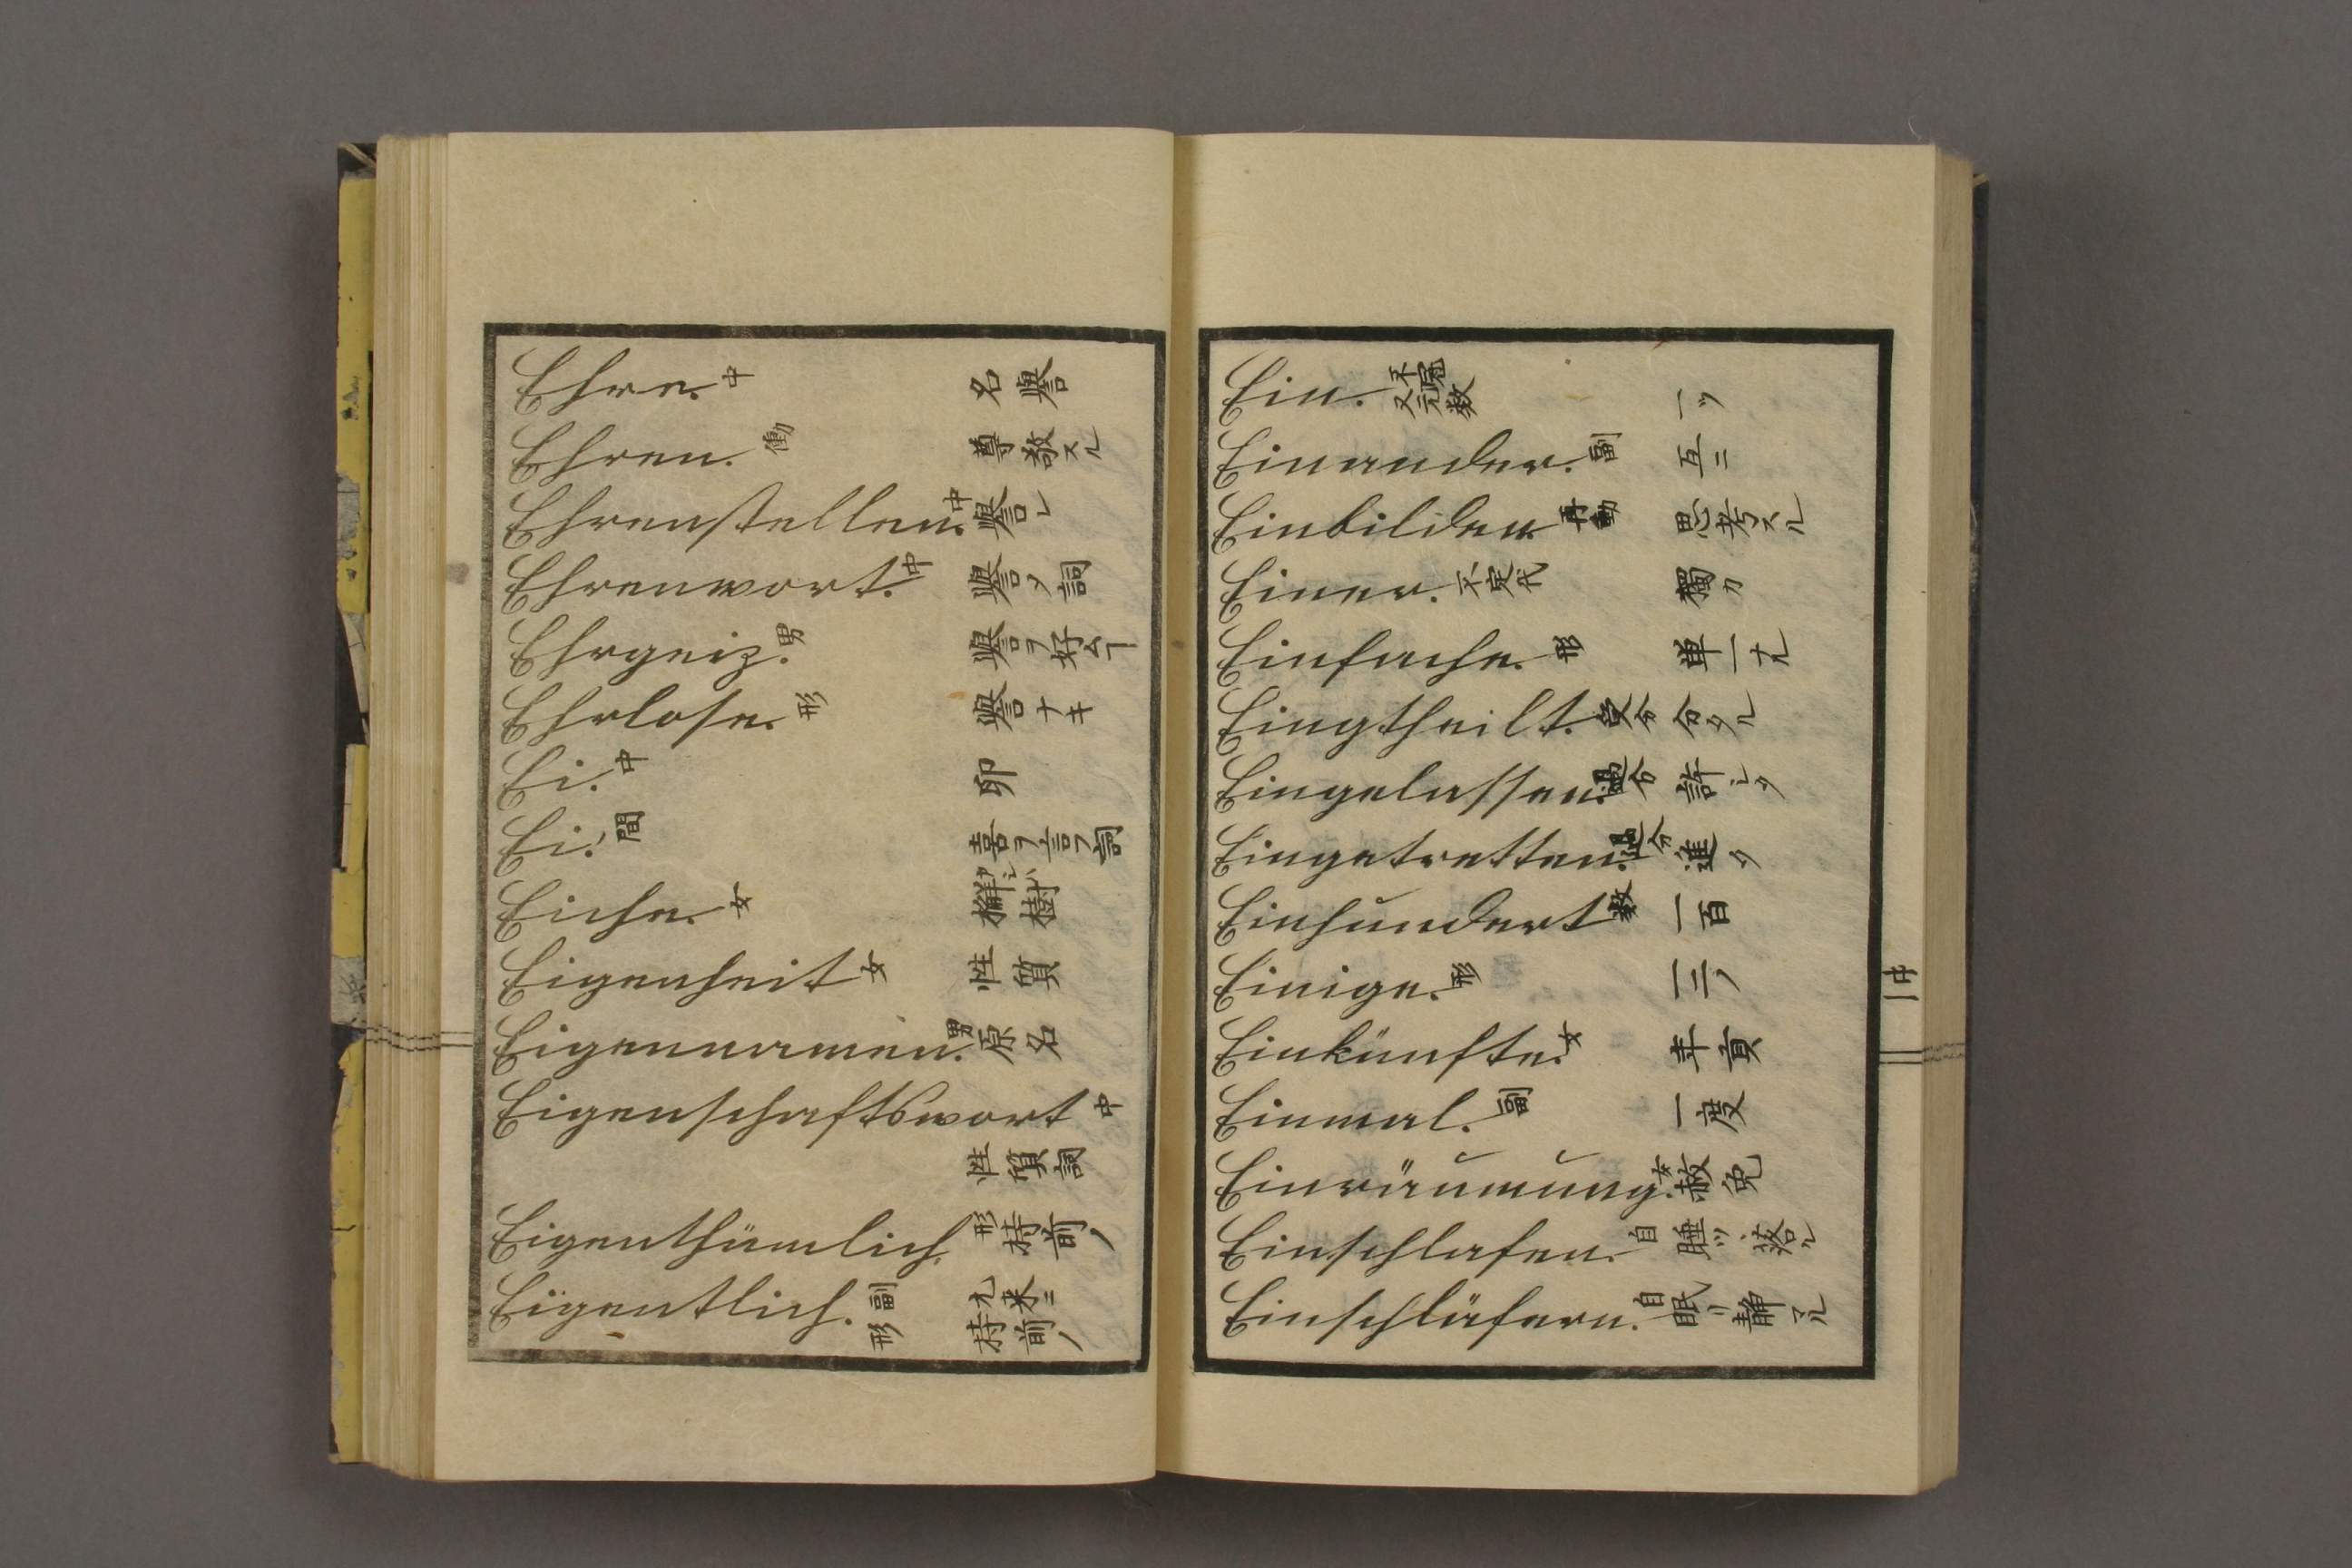 Ehre. 中 名譽
Ehren. 働 尊敬スル
Ehrenstellen. 中 譽レ
Ehrenwort. 中 譽ノ詞
Ehrgeiz. 男 譽ヲ好ム
Ehrlose. 形 譽ナキ
Ei. 中 卵
Ei! 間 喜ヲ言フ詞
Eiche. 女 樹
Eigenheit 女 性質
Eigennamen. 男 原名
Eigenschaftswort 中
性質詞
Eigenthümlich. 形 持前ノ
Eigentlich. 副 元来ニ
形 持前ノ
Ein. 不冠 又元数 一ツ
Einander. 副 互ニ
Einbilden 再動 思考スル
Einer. 不定代 獨カ
Einfache. 形 単一ナル
Eingtheilt. 受分 分タル
Eingelassen. 過分 許シタ
Eingetretten. 過分 進ク
Einhundert 数 一百
Einige. 形 一二ノ
Einkünfte. 女 年貢
Einmal. 副 一度
Einräumung. 女 赦免
Einschlafen. 自 睡ツ落ル
Einschläfern. 自 眠リ静マル
廿一